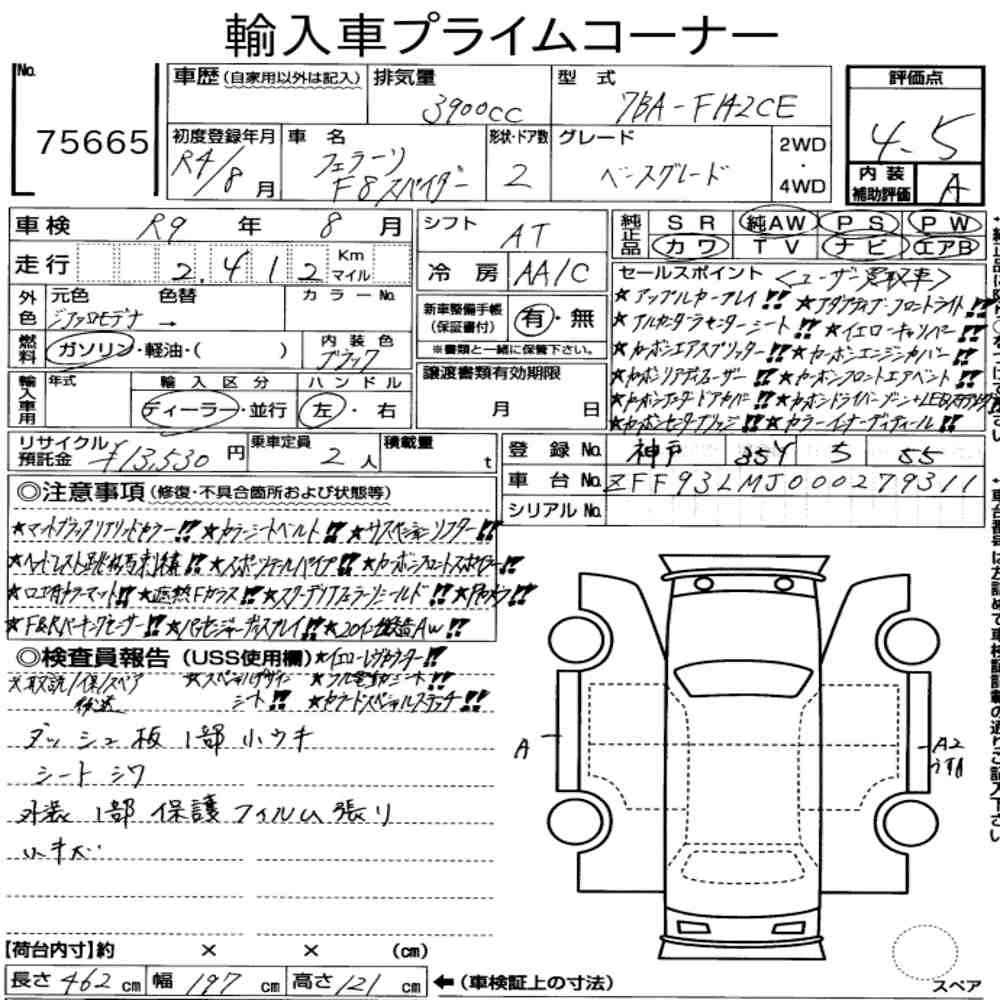 輸入車プライムコーナー
No. 75665
車歴(自家用以外は記入)
排気量 3900cc
型式 7BA-F142CE
評価点 4.5
初度登録年月 R4/8月
車名 フェラーリ F8スパイダー
形状・ドア数 2
グレード ベースグレード
2WD・4WD
内装補助評価 A
車検 R9年 8月
シフト AT
純正品 SR 純AW PS PW
カワ TV ナビ エアB
走行 2,412 Km マイル
冷房 AA/C
セールスポイント <ユーザー買取車>
★アップルカープレイ!! ★アダプティブフロントライト!!
★アルカンタラセンターシート!! ★イエローキャリパー!!
★カーボンエアスプリッター!! ★カーボンエンジンカバー!!
★カーボンリアディフューザー!! ★カーボンフロントエアベント!!
★カーボンアンダードアカバー!! ★カーボンドライバーゾーン+LEDステアリング
★カーボンセンターブリッジ!! ★カラーインナーディティール!!
外色 元色 色替 カラーNo.
ジアロモデナ →
新車整備手帳(保証書付) 有・無
※書類と一緒に保管下さい。
燃料 ガソリン・軽油・( )
内装色 ブラック
譲渡書類有効期限
月 日
輸入車用 年式
輸入区分 ディーラー・並行
ハンドル 左・右
リサイクル預託金 ¥13,530円
乗車定員 2人
積載量 t
登録No. 神戸 55
車台No. ZFF93LMJ000279311
シリアルNo.
◎注意事項(修復・不具合箇所および状態等)
★マットブラックリアグリッドカラー!! ★カラーシートベルト!! ★サスペンションリフター!!
★ヘッドレスト跳ね馬刺繍!! ★スポーツテールパイプ!! ★カーボンフロントスポイラー!!
★ロゴ付カラーマット!! ★遮熱Fガラス!! ★スクーデリアフェラーリシールド!! ★Rカメラ!!
★F&Rパーキングセンサー!! ★パッセンジャーディスプレイ!! ★20インチ鍛造AW!!
◎検査員報告(USS使用欄) ★イエローレヴカウンター!!
※取説/保/スペア 後送
★スペシャルデザインシート!! ★フル電動シート!!
★カラードスペシャルステッチ!!
ダッシュ板 1部 小ウキ
シート シワ
外装 1部 保護フィルム張り
小キズ
A
A2
【荷台内寸】約 × × (cm)
長さ 462 cm 幅 197 cm 高さ 121 cm ←(車検証上の寸法)
スペア